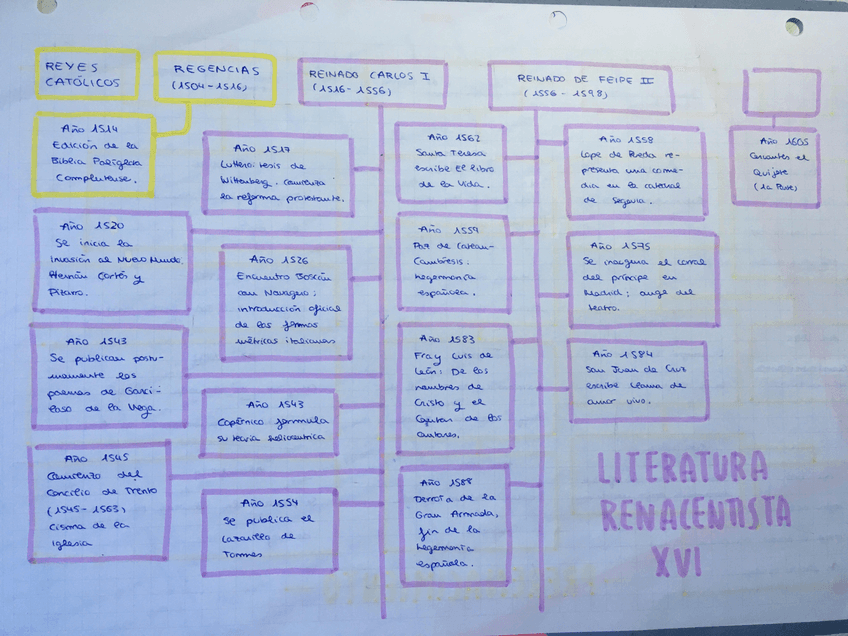 REYES
CATÓLICOS
REGENCIAS
(1504-1516)
Año 1514
Edición de la
Biblia Políglota
Complutense.
REINADO CARLOS I
(1516-1556)
Año 1517
Lutero: tesis de
Wittenberg. Comienza
la reforma protestante.
Año 1520
Se inicia la
invasión al Nuevo Mundo.
Hernán Cortés y
Pizarro.
Año 1526
Encuentro Boscán
con Navagiero:
introducción oficial
de las formas
métricas italianas
Año 1543
Se publican postu-
mamente los
poemas de Garci-
laso de la Vega.
Año 1543
Copérnico formula
su teoría heliocéntrica
Año 1545
Comienzo del
Concilio de Trento
(1545-1563)
Cisma de la
Iglesia
Año 1554
Se publica el
Lazarillo de
Tormes
REINADO DE FEIPE II
(1556-1598)
Año 1562
Santa Teresa
escribe El libro
de la Vida.
Año 1558
Lope de Rueda re-
presenta una come-
dia en la catedral
de Segovia.
Año 1559
Paz de Cateau-
Cambresis:
hegemonía
española.
Año 1575
Se inaugura el corral
del príncipe en
Madrid; auge del
teatro.
Año 1583
Fray Luis de
León: De los
nombres de
Cristo y el
Cantar de los
cantares.
Año 1584
San Juan de Cruz
escribe Llama de
amor vivo.
Año 1588
Derrota de la
Gran Armada,
fin de la
hegemonía
española.
Año 1605
Cervantes el
Quijote
(1a Parte)
LITERATURA
RENACENTISTA
XVI